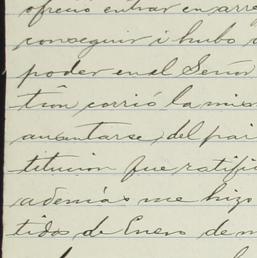 ofreció entrar en arre
conseguir i hubo d
poder en el Señor
tion corrió la mis
ausentarse del pai
titucion fue ratific
además me hizo
tidos de Enero de m